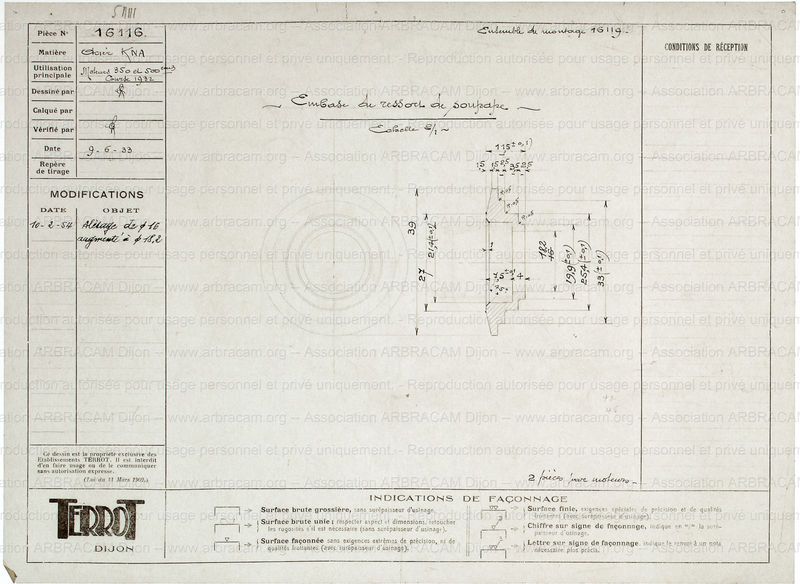 5 AIII
Pièce N° 16116.
Matière Acier KNA
Utilisation principale Moteurs 350 et 500 cm3
Course 1932
Dessiné par
Calqué par
Vérifié par
Date 9-6-33
Repère de tirage
MODIFICATIONS
DATE OBJET
10-2-54 Alésage de ϕ 16
augmenté à ϕ 18,2
Ensemble de montage 16119.
CONDITIONS DE RÉCEPTION
~ Embase de ressort de soupape ~
Echelle 2/1 ~
11,5 ± 0,1
39
27
21,4 (± 0,1)
7,5 ± 0,1 4
18,2
16
19,9 (± 0,1)
25,4 (± 0,1)
33 (± 0,1)
2 pièces par moteurs -
Ce dessin est la propriété exclusive des
Etablissements TERROT. Il est interdit
d'en faire usage ou de le communiquer
sans autorisation expresse.
(Loi du 11 Mars 1902.)
TERROT
DIJON
INDICATIONS DE FAÇONNAGE
Surface brute grossière, sans surépaisseur d'usinage.
Surface brute unie; respecter aspect et dimensions, retoucher
les rugosités s'il est nécessaire (sans surépaisseur d'usinage).
Surface façonnée sans exigences extrêmes de précision, ni de
qualités frottantes (avec surépaisseur d'usinage).
Surface finie, exigences spéciales de précision et de qualités
frottantes (avec surépaisseur d'usinage).
Chiffre sur signe de façonnage, indique en m/m la surépaisseur d'usinage.
Lettre sur signe de façonnage, indique le renvoi à un nota
nécessaire plus précis.
www.arbracam.org – Association ARBRACAM Dijon – www.arbracam.org – Association ARBRACAM Dijon
Reproduction autorisée pour usage personnel et privé uniquement.